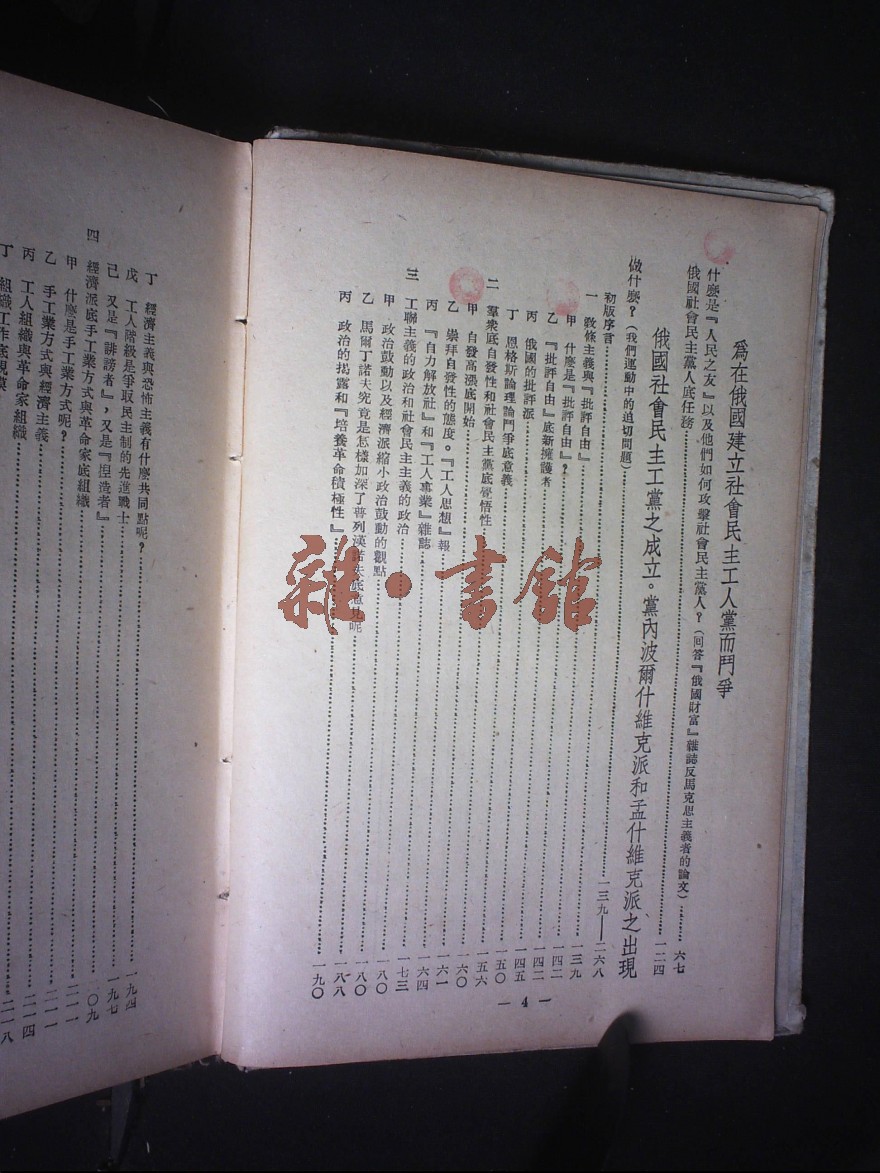 爲在俄國建立社會民主工人黨而鬥爭
什麼是『人民之友』以及他們如何攻擊社會民主黨人？(回答『俄國財富』雜誌反馬克思主義者的論文)……六七
俄國社會民主黨人底任務……一二四
俄國社會民主工黨之成立。黨內波爾什維克派和孟什維克派之出現
做什麼？(我們運動中的迫切問題)……一三九——二六八
初版序言……一三九
一 敎條主義與『批評自由』……一四二
甲 什麼是『批評自由』？……一四二
乙 『批評自由』底新擁護者……一四五
丙 俄國的批評派……一五〇
丁 恩格斯論理論鬥爭底意義……一五六
二 羣衆底自發性和社會民主黨底覺悟性……一六〇
甲 自發高漲底開始……一六一
乙 崇拜自發性的態度。『工人思想』報……一六四
丙 『自力解放社』和『工人事業』雜誌……一七三
三 工聯主義的政治和社會民主主義的政治……一八〇
甲 政治鼓動以及經濟派縮小政治鼓動的觀點……一八〇
乙 馬爾丁諾夫究竟是怎樣加深了普列漢諾夫底意見呢……一八八
丙 政治的揭露和『培養革命積極性』……一九〇
— 4 —
雜·書館
丁 經濟主義與恐怖主義有什麼共同點呢？……一九四
戊 工人階級是爭取民主制的先進戰士……一九七
己 又是『誹謗者』，又是『捏造者』……〇九
四 經濟派底手工業方式與革命家底組織……二一一
甲 什麼是手工業方式呢？……二一一
乙 手工業方式與經濟主義……二一四
丙 工人組織與革命家組織……二一八
丁 組織工作底規模